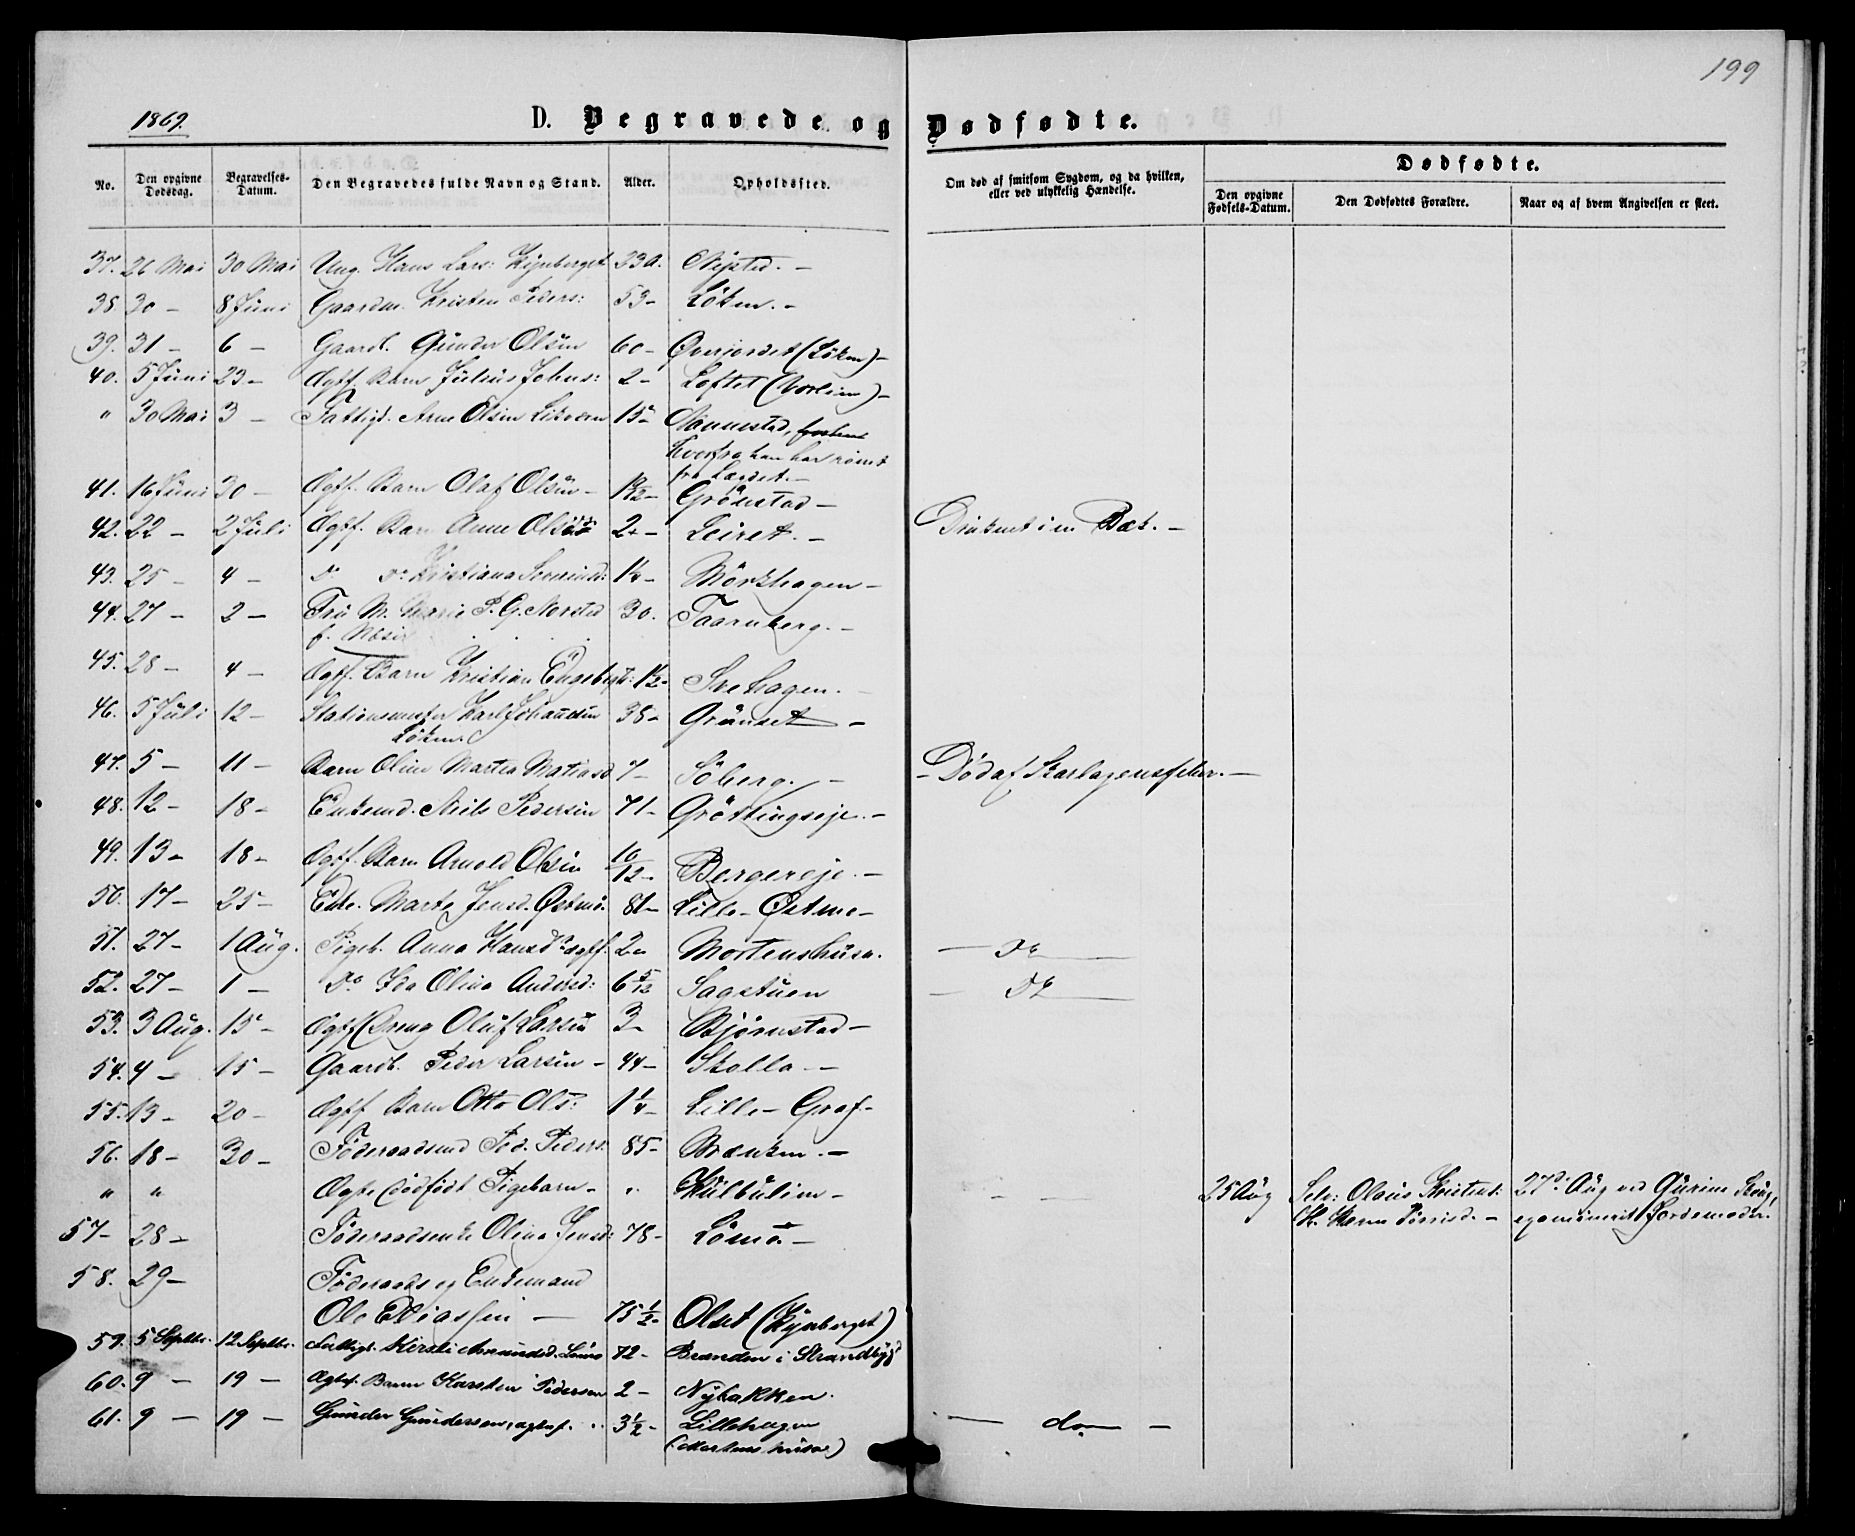 199
1869.
D. Begravede og Dødfødte.
No. Den opgivne Dødsdag. Begravelses-Datum. Den Begravedes fulde Navn og Stand. Alder. Opholdssted. Om død af smitsom Sygdom, og da hvilken, eller ved ulykkelig Hændelse. Dødfødte.
Den opgivne Fødsels-Datum. Den Dødfødtes Forældre. Naar og af hvem Angivelsen er skeet.
37. 26 Mai 30 Mai Ung. Hans Lars: Kynberget 23 a.
38 30 - 8 Juni Gaardm. Kristen Peders: 53 - Løken. -
39. 31 - 6 - Gaardb. Gunder Olsen 60 - Øverjordet (Løken) -
40. 5 Juni 23 - Ægtf. Barn Julius Johns: 2 - Loftet
" 30 Mai 3 - Fattigl. Arne Olsen 15 - Nannestad,
hvorfra han har rømt
fra Lægdet. -
41. 16 Juni 30 - Ægtf. Barn Olaf Olsen - Grønstad -
42. 22 - 2 Juli Ægtf. Barn Anne 2 - Leiret. - Druknet i en Bæk. -
43. 25 - 4 - Do Do Kristiana Mørkhagen -
44. 27 - 2 - Fru M. Marie P. G. Norsted 30. Taarnberg. -
45. 28 - 4 - Ægtf. Barn Kristian Engebrets: 1½ - Svehagen. -
46. 5 Juli 12 - Stationsmester Karl Johansen 38 - Grønset -
Løken.
47. 5 - 11 - Barn Oline Martea Matiasd 7 - Søberg. - - Død af Skarlagensfeber. -
48. 12 - 18 - Enkemd. Niels Pedersen 71 - Grøttingseje. -
49. 13 - 18 - Ægtf. Barn Arnold Olsen 10/12 - Bergereje. -
50. 17 - 25 - Enke. Marte Jensd. Østmo. 81 - Lille-Østmo -
51. 27 - 1 Aug. Pigeb. Anna Hansd. ægtf. 2 - Mortenshusa. - Do -
52. 27 - 1 - Do Ida Olina Andersd: 6 5/12 Sagstuen - Do -
53. 3 Aug. 15 - Ægtf Dreng Oluf Larsen 3 - Bjørnstad -
54. 4 - 15 - Gaardb. Peder Larsen - 44 - Skolla. -
55. 13 - 20 - Ægtf Barn Otto Ols: 1¼ - Lille-Graf -
56. 18 - 30 - Føderaadsmd Ped. Peders: 85 - Brænken. -
" " Ægte dødfødt Pigebarn - " Kulbulien - - - 25 Aug Selv: Olaus Kristens: 27de Aug ved Gurine
- Jordemoder.
57 - 28 - Føderaadsenke Olina Jensd: 78 - Lømo. -
58. 29 - Føderaads og Enkemand
Ole Eliassen - 75½ - Olset (Kynberget)
59. 5 Septbr. 12 Septbr. Fattigl. Kersti Amundsd. Lømo 72 - Brænden i Strandbygd
60. 9 - 19 - Ægtef. Barn Karsten Pedersen 2 - Nybakken.
61. 9 - 19 - Gunder Gundersen, ægtef. 3½ - Lillehagen - do -
(Mortenshusa)